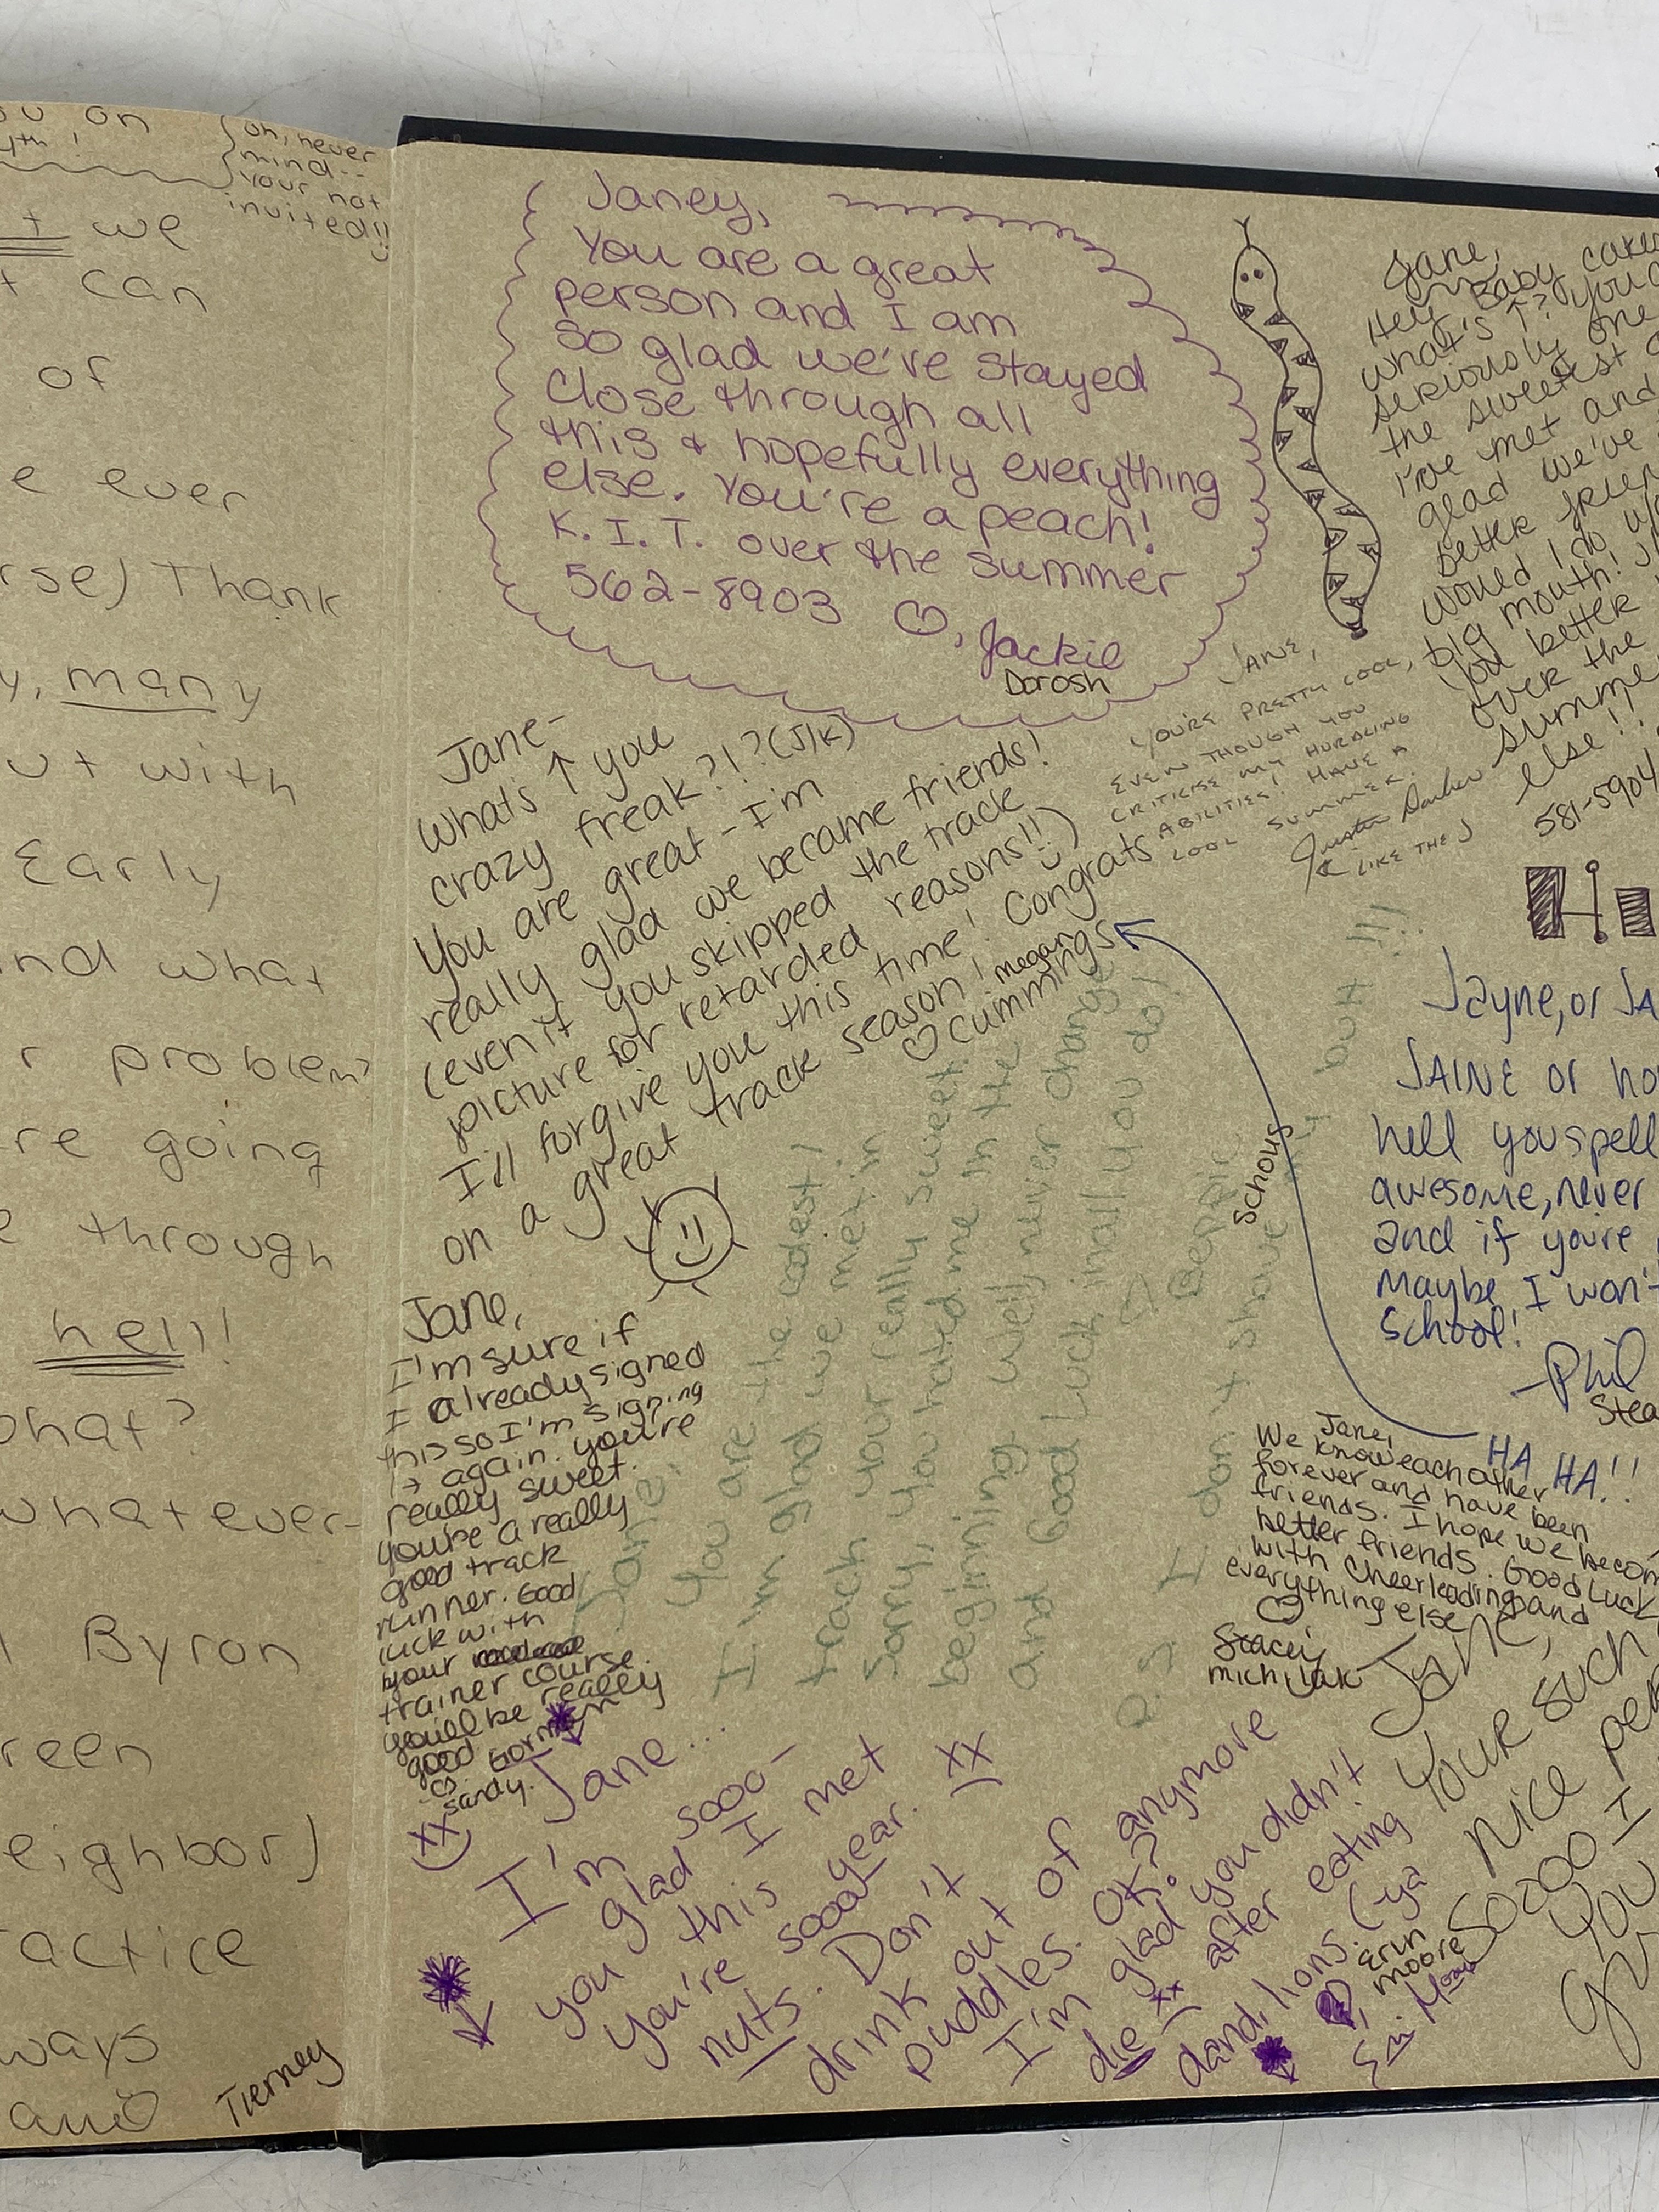 you on
4th!
oh, never
mind--
your not
invited!!
we
can
of
e ever
rse) Thank
y, many
ut with
Early
nd what
r problem?
re going
e through
hell!
what?
whatever-
Byron
reen
eighbor)
actice
ways
and
Tierney
Janey,
You are a great
person and I am
so glad we've stayed
close through all
this & hopefully everything
else. You're a peach!
K. I. T. over the summer
562-8903 ♡, Jackie
Dorosh
Jane,
Hey Baby cakes
what's ↑? you
seriously one
the sweetest
I've met and
glad we've
better frien
would I do w/o
big mouth!
You better
over the
summer
else!!
581-5904
JANE,
YOU'RE PRETTY COOL,
EVEN THOUGH YOU
CRITICISE MY HURDLING
ABILITIES! HAVE A
COOL SUMMER.
Justin
LIKE THE J
Jane-
Whats ↑ you
crazy freak?!?(J/K)
You are great - I'm
really glad we became friends!
(even if you skipped the track
picture for retarded reasons!!)
I'll forgive you this time! Congrats
on a great track season!
♡ megan
cummings
Jayne, or JA
JAINE or ho
hell you spell
awesome, never
and if you're
maybe I won't
school!
-Phil
Stea
HA HA!!
Jane,
I'm sure if
I already signed
this so I'm signing
→ again. you're
really sweet.
you're a really
good track
runner. Good
luck with
your
trainer course.
you'll be really
good
♡ Gorman
sandy.
Jane,
You are the coolest!
I'm glad we met in
track your really sweet
Sorry, you hated me in the
beginning well, never change
and Good Luck in all you do!
♡ Beppie
Schous
P.S. I don't shave my butt!!!
Jane,
We know each other
forever and have been
friends. I hope we becom
better friends. Good Luck
with Cheerleading and
everything else
♡
Stacey
michilak
Jane...
I'm sooo-
glad I met
you this year.
You're sooo
nuts. Don't
drink out of
puddles. anymore
OK?
I'm glad you didn't
die xx after eating
dandilions. (-ya
Erin
moore
Erin Moore
Jane,
Your such
nice per
Sozoo I
you